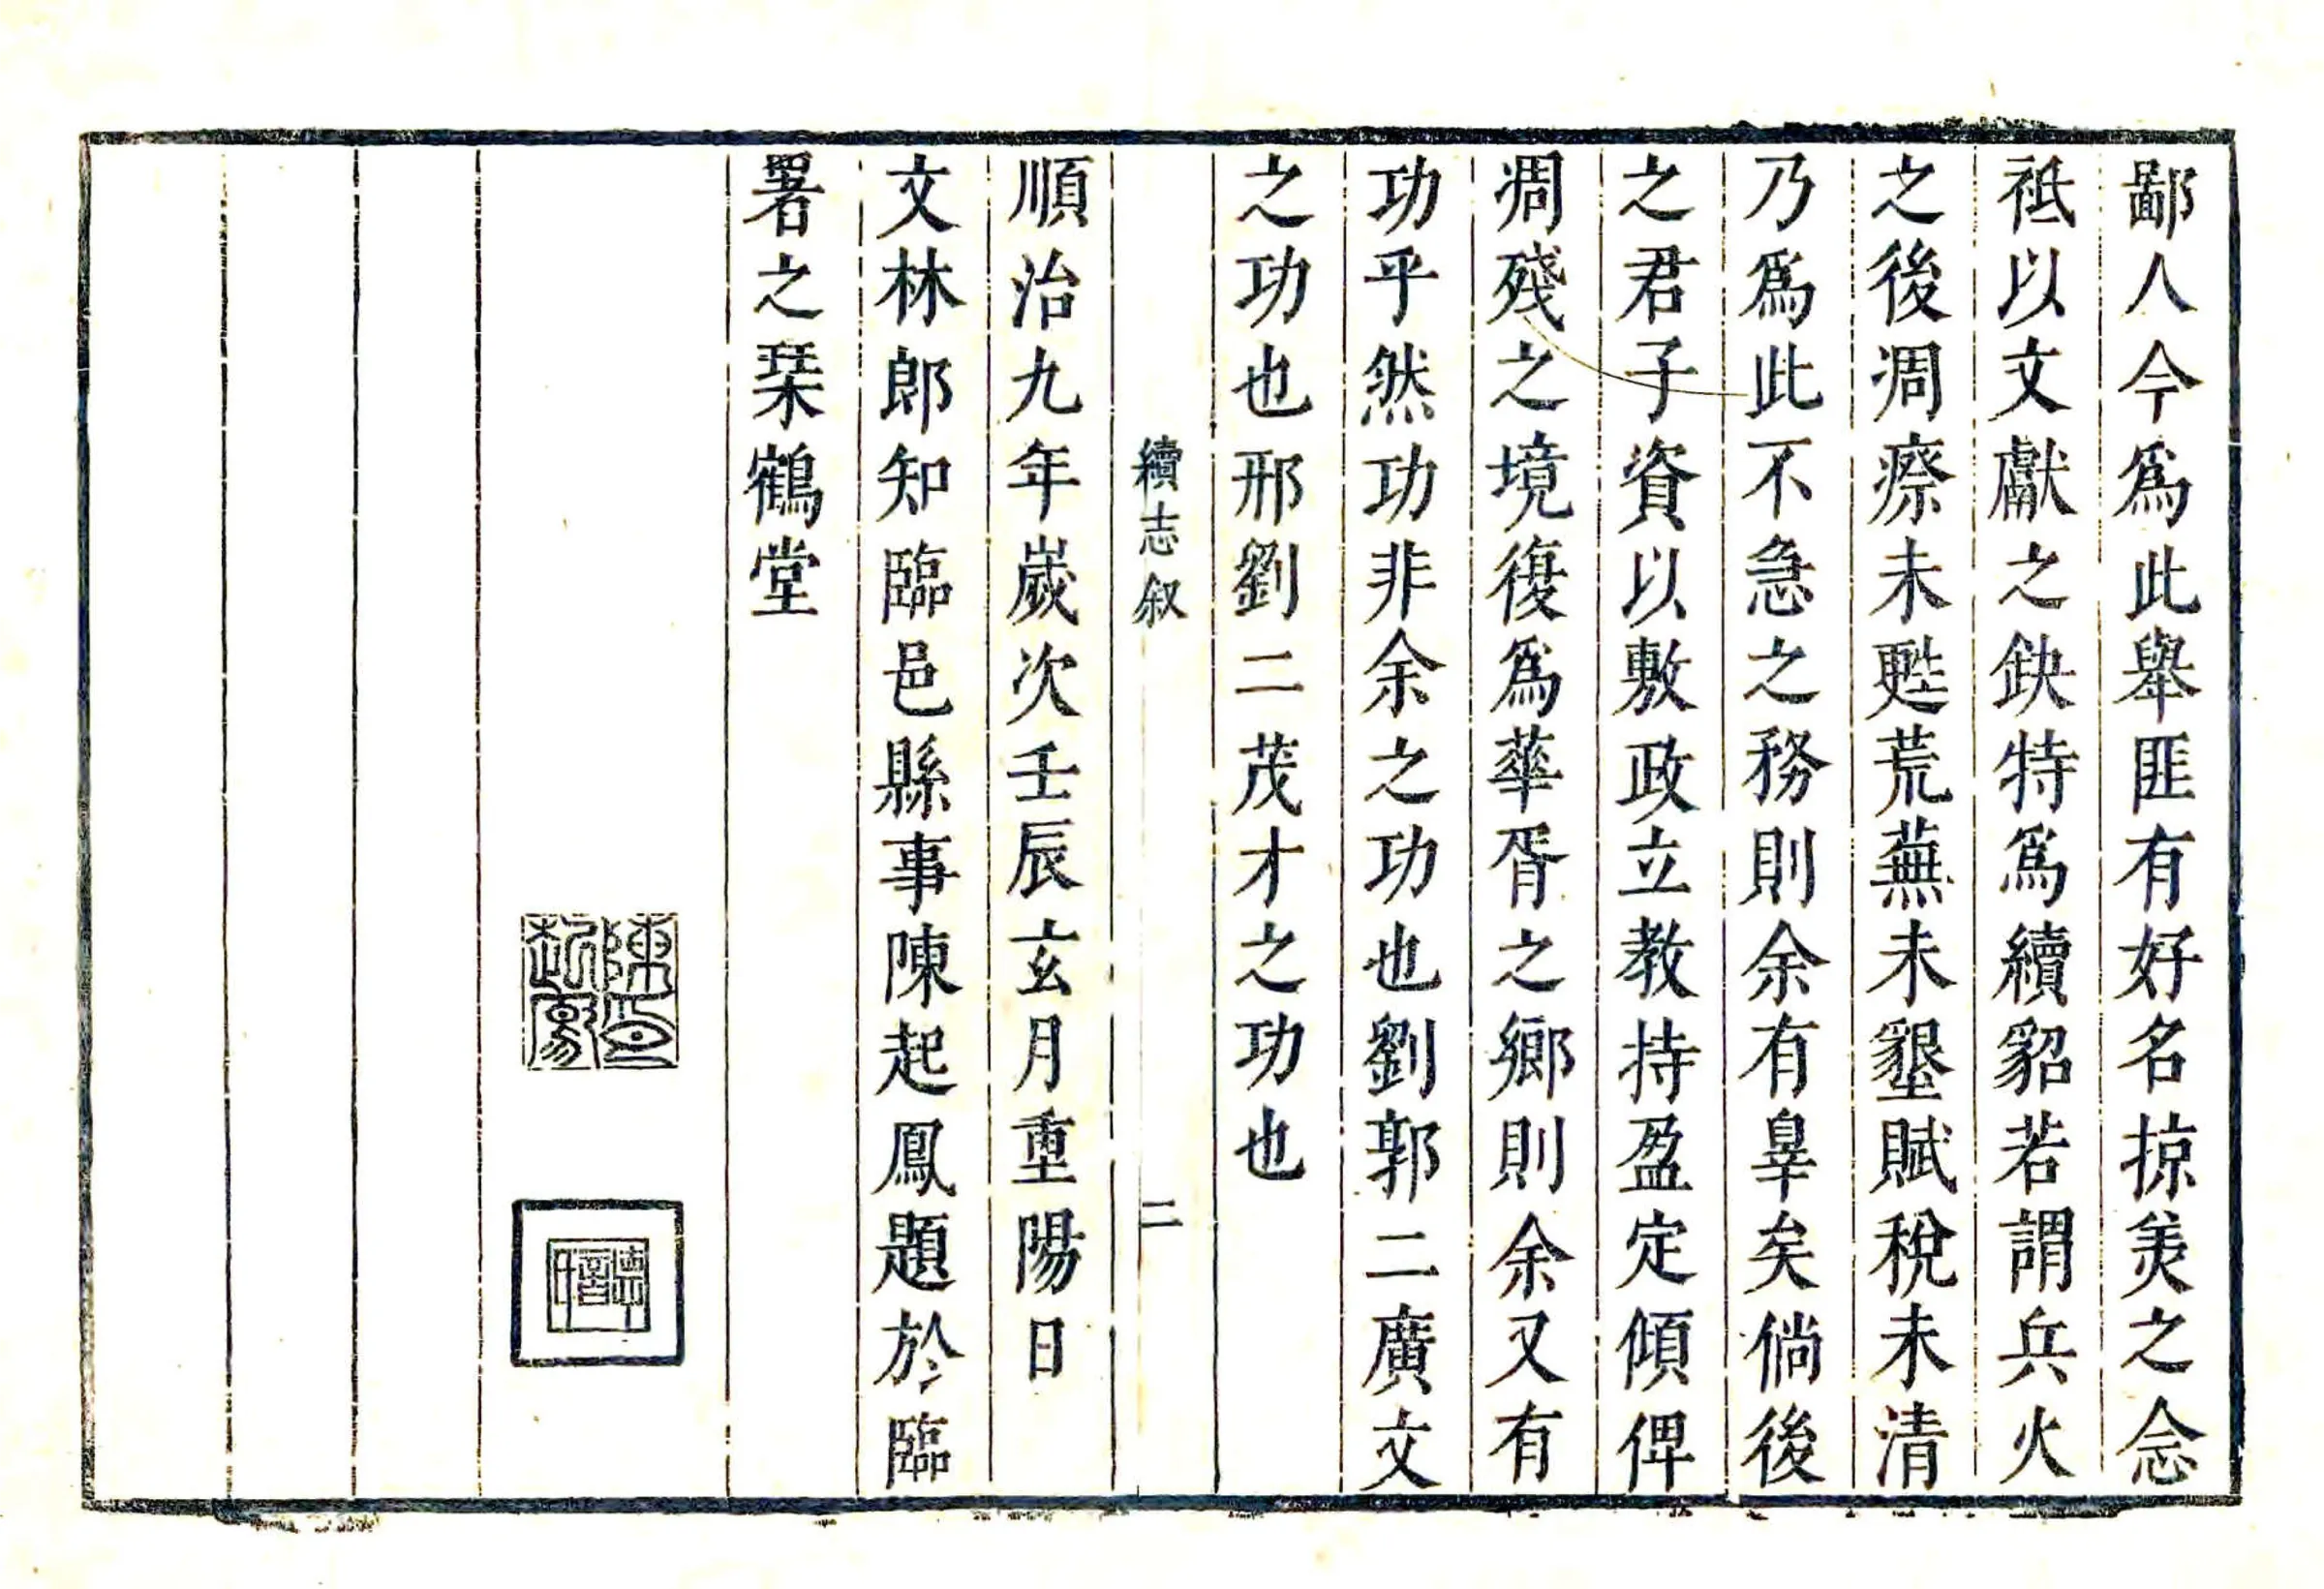 鄙人今爲此舉匪有好名掠美之念
祗以文獻之缺特爲續貂若謂兵火
之後凋瘵未甦荒蕪未墾賦稅未清
乃爲此不急之務則余有辠矣倘後
之君子資以敷政立教持盈定傾俾
凋殘之境復爲華胥之鄉則余又有
功乎然功非余之功也劉郭二廣文
之功也邢劉二茂才之功也
續志叙
二
順治九年歲次壬辰玄月重陽日
文林郎知臨邑縣事陳起鳳題於臨
署之琹鶴堂
陳印起鳳